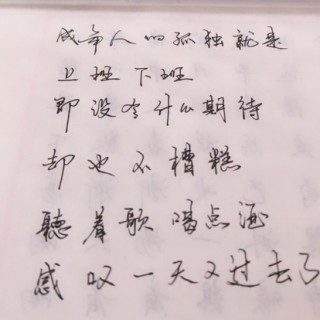 成年人的孤独就是
上班下班
即没今什么期待
却也不糟糕
聽着歌喝点酒
感叹一天又过去了